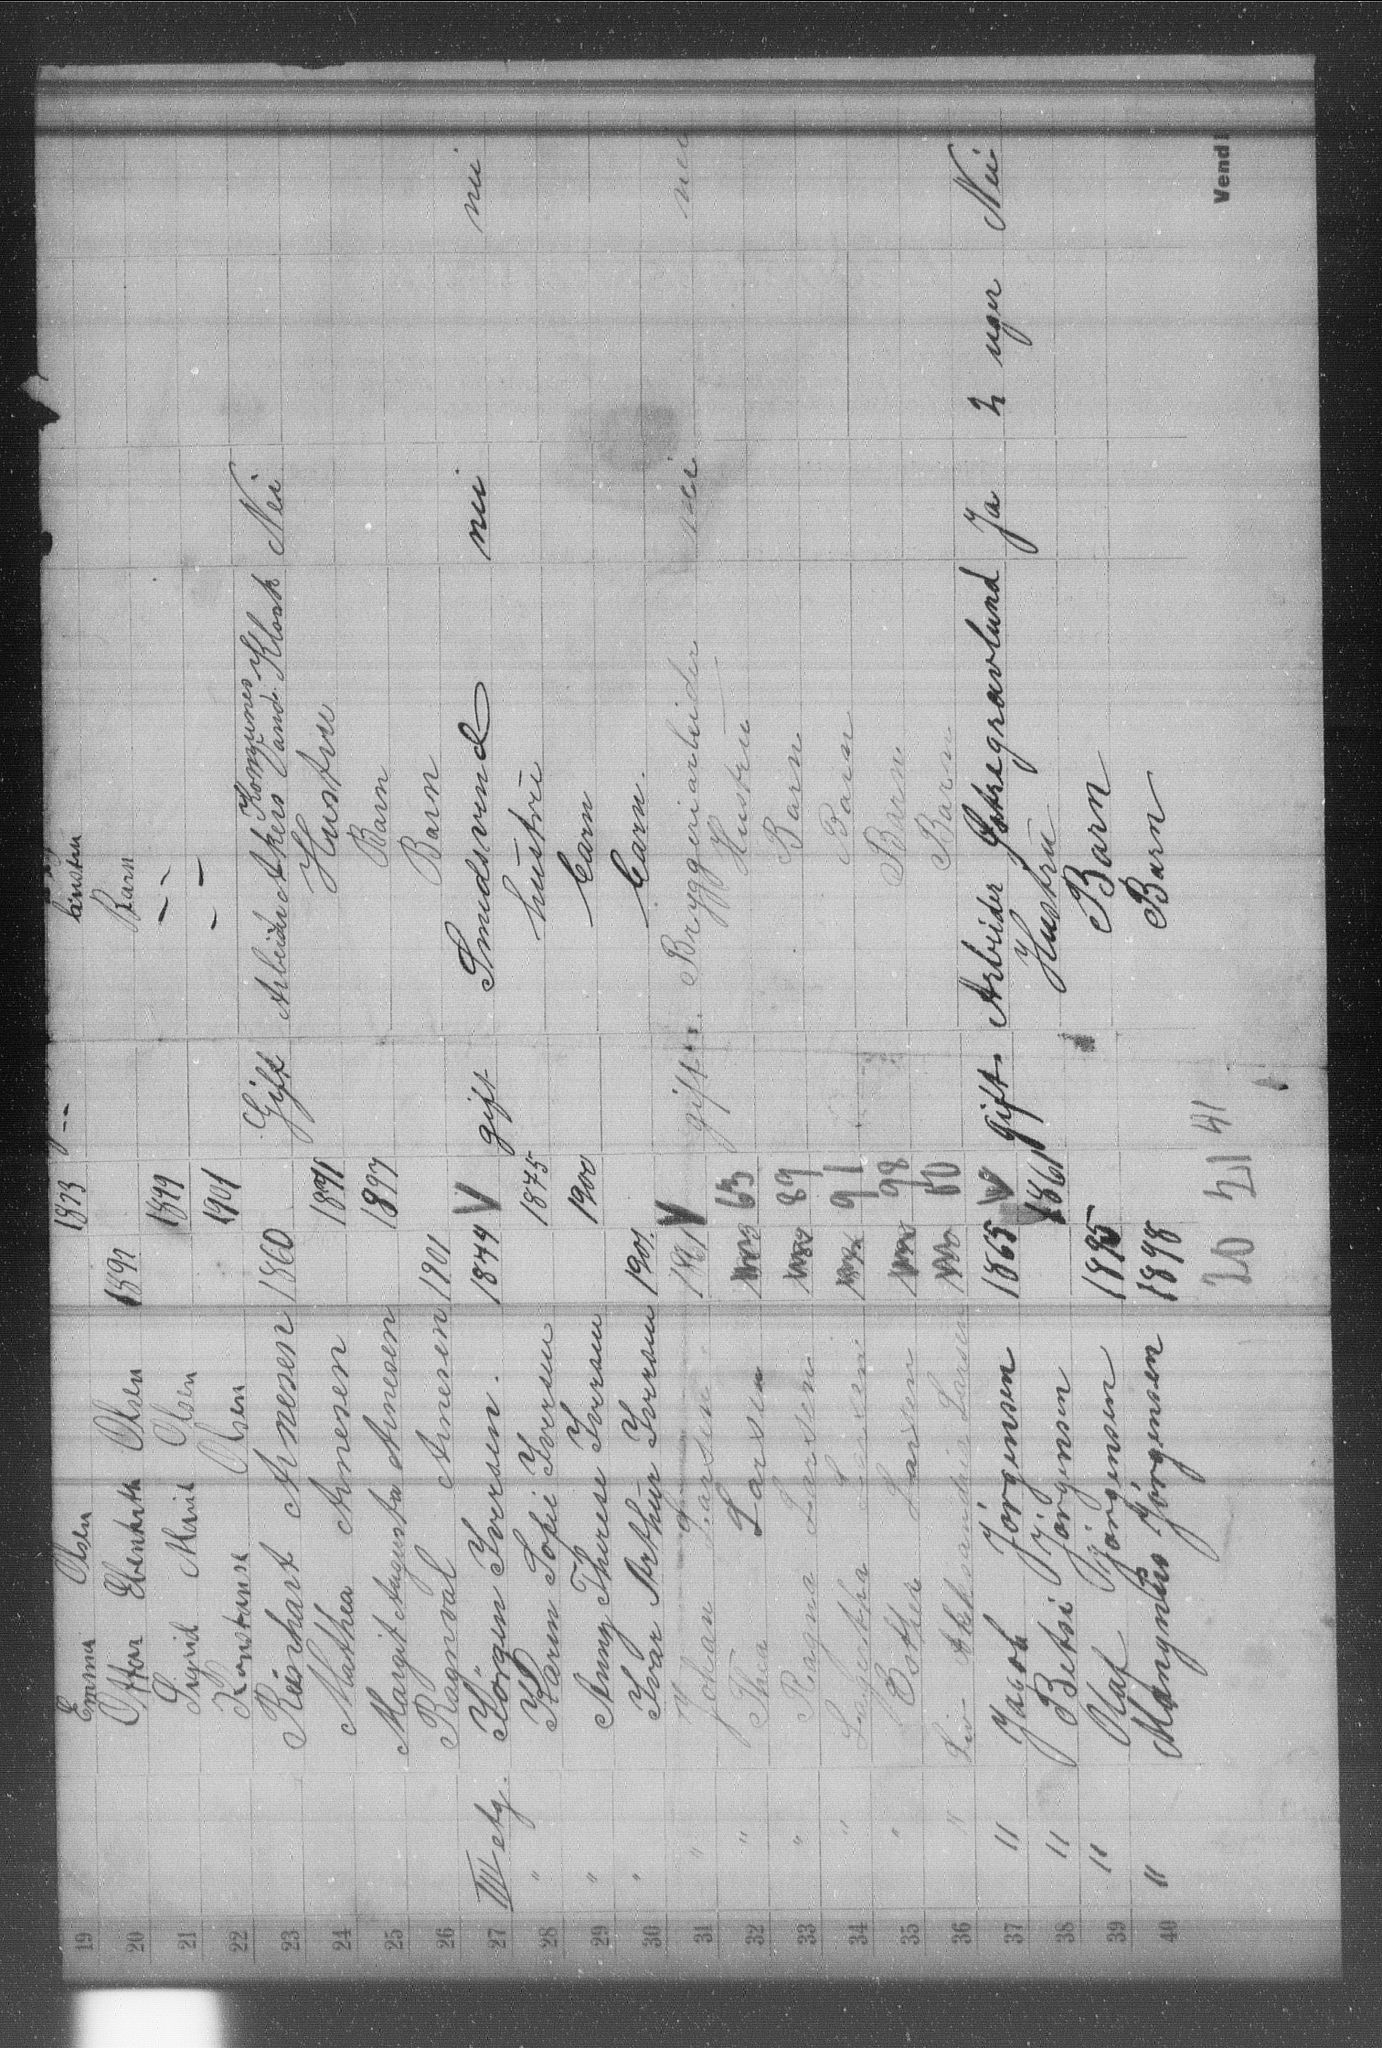 19 Emma Olsen 1873 " -- hustru
20 Ottar Ebenhart Olsen 1897 Barn
21 Sigrid Marie Olsen 1899 -- --
22 Konstanse Olsen 1901 -- --
23 Reinhart Arnesen 1860 Gift Arbeider Akers Komunes Vand Kloak Nei
24 Mathea Arnesen 1871 Hustru
25 Margit Augusta Arnesen 1897 Barn
26 Ragnval Arnesen 1901 Barn
27 III etg. Jörgen Iversen. 1874 V gift Smedsvend nei nei
28 " Karen Sofie Iversen 1875 hustru
29 " Anny Therese Iversen 1900 barn
30 " Ivar Arthur Iversen 1901. barn.
31 " Johan Larsen. 1861 V gift. Bryggeriarbeider nei nei
32 " Thea Larsen 63 Hustru
33 " Ragna Larsen 89 Barn
34 " Larsen 91 Barn
35 " Esther Larsen 98 Barn
36 " Aleksandria Larsen 00 Barn
37 " Jacob Jörgensen 1865 V Gift. Arbeider Ja 2 uger Nei
38 " Betsi Jörgensen 1861 Hustru
39 " Olaf Jörgensen 1895 Barn
40 " Mangnus Jörgensen 1898 Barn
20 21 41
Vend!